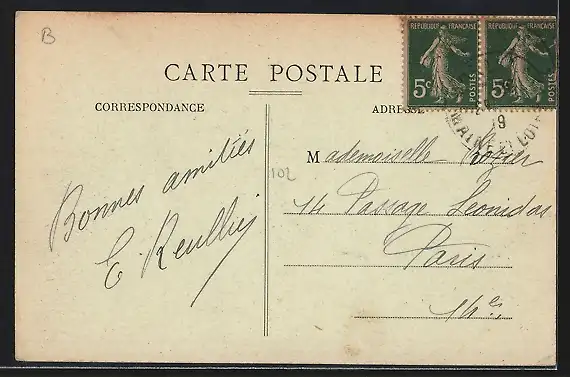 B
REPUBLIQUE FRANÇAISE REPUBLIQUE FRANÇAISE
5c POSTES 5c POSTES
CARTE POSTALE
CORRESPONDANCE
ADRESSE
19
MAINE ET LOIRE
Bonnes amitiés
E.
102
Mademoiselle Rozier
14 Passage Leonidas
Paris
14es